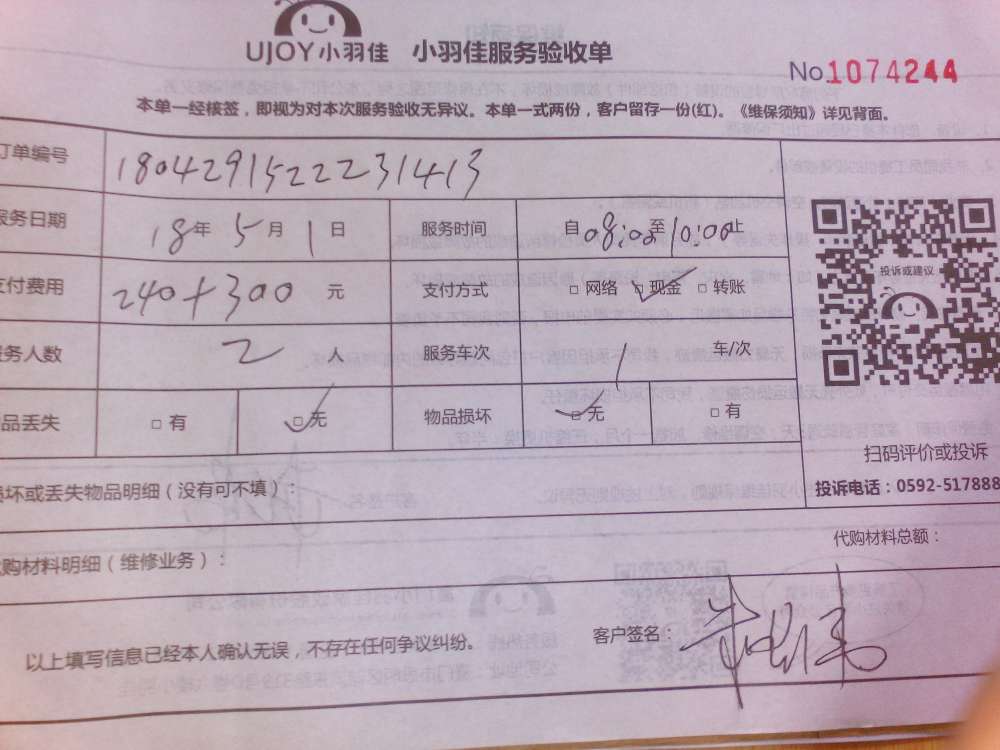 UJOY小羽佳 小羽佳服务验收单
No 1074244
本单一经核签，即视为对本次服务验收无异议。本单一式两份，客户留存一份(红)。《维保须知》详见背面。
订单编号 18042915222231413
服务日期 18年 5月 1日 服务时间 自08:00至10:00止
支付费用 240+300 元 支付方式 □网络 ☑现金 □转账
服务人数 2 人 服务车次 1 车/次
物品丢失 □有 ☑无 物品损坏 ☑无 □有
投诉或建议
扫码评价或投诉
投诉电话：0592-517888
损坏或丢失物品明细（没有可不填）：
代购材料明细（维修业务）：
代购材料总额：
以上填写信息已经本人确认无误，不存在任何争议纠纷。
客户签名：